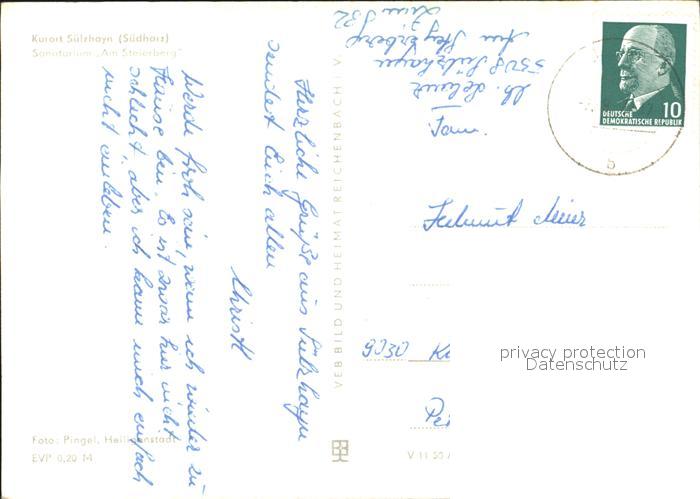 Kurort Sülzhayn (Südharz)
Sanatorium „Am Steierberg"
Herzliche Grüße aus Sülzhayn
sendet Euch allen
Christl
Werde froh sein, wenn ich wieder zu
Hause bin. Es ist zwar hier nicht
schlecht aber ich kann mich einfach
nicht einleben.
Foto: Pingel, Heiligenstadt
EVP 0,20 M
VEB BILD UND HEIMAT REICHENBACH I. V.
V 11 50
5508 Sülzhayn
DEUTSCHE
DEMOKRATISCHE REPUBLIK
10
b
Fam.
Helmut Meier
9030 K
privacy protection
Datenschutz